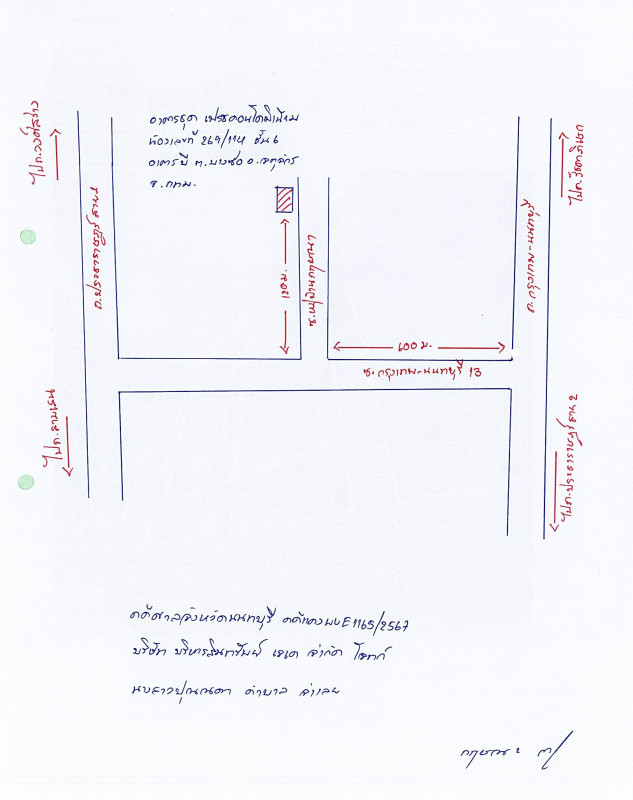 อาคารชุด เฟรชคอนโดมิเนียม
ห้องเลขที่ 269/114 ชั้น 6
อาคารบี ต.บางซื่อ อ.จตุจักร
จ.กทม.
ไปถ.วงศ์สว่าง
ไปถ.รัชดาภิเษก
ถ.ประชาราษฎร์สาย 1
ถ.กรุงเทพ-นนทบุรี
120 ม.
600 ม.
ซ.กรุงเทพ-นนทบุรี 13
ไปถ.ประชาราษฎร์สาย 2
คดีศาลจังหวัดนนทบุรี คดีแดงผบE1165/2567
บริษัท บริหารสินทรัพย์ เจเค จำกัด โจทก์
นางสาวปุณณดา คำบาล จำเลย